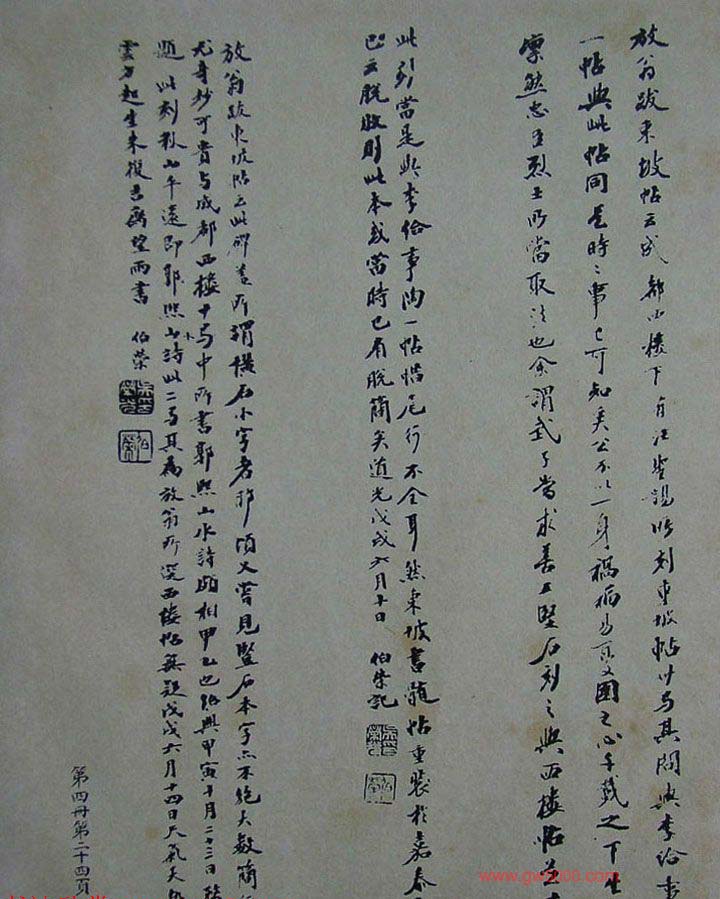 放翁跋東坡帖云成都西樓下有汪聖錫所刻東坡帖廿与其間與李給事
一帖與此帖同是時之事已可知矣公不以一身禍福易憂國之心千載之下生
凜然忠臣烈士所當取法也余謂武子當求善工堅石刻之與西樓帖並
此引當是與李給事陶一帖惜尾行不全耳然東坡書髓帖重裝於嘉泰
已云脫敗則此本或當時已有脫簡矣道光戊戌六月十日 伯榮記
放翁跋東坡帖云此碑蓋所謂橫石小字者耶頃又嘗見豎石本字亦不絕大數簡
尤奇妙可貴与成都西樓十与中所書郭熙山水詩頗相甲乙也紹興甲寅十月二十三日
題 此刻秋山平遠即郭熙山水詩此二与其為放翁所選西樓帖無疑戊戌六月十四日天氣大
雲方起坐未復書為望雨書 伯榮
第四冊第二十四頁